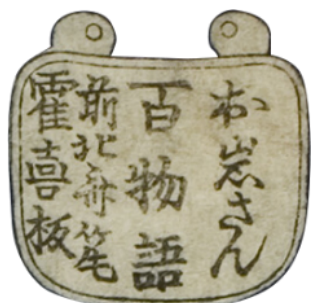 お岩さん
百物語
前北斎笔
霍喜板